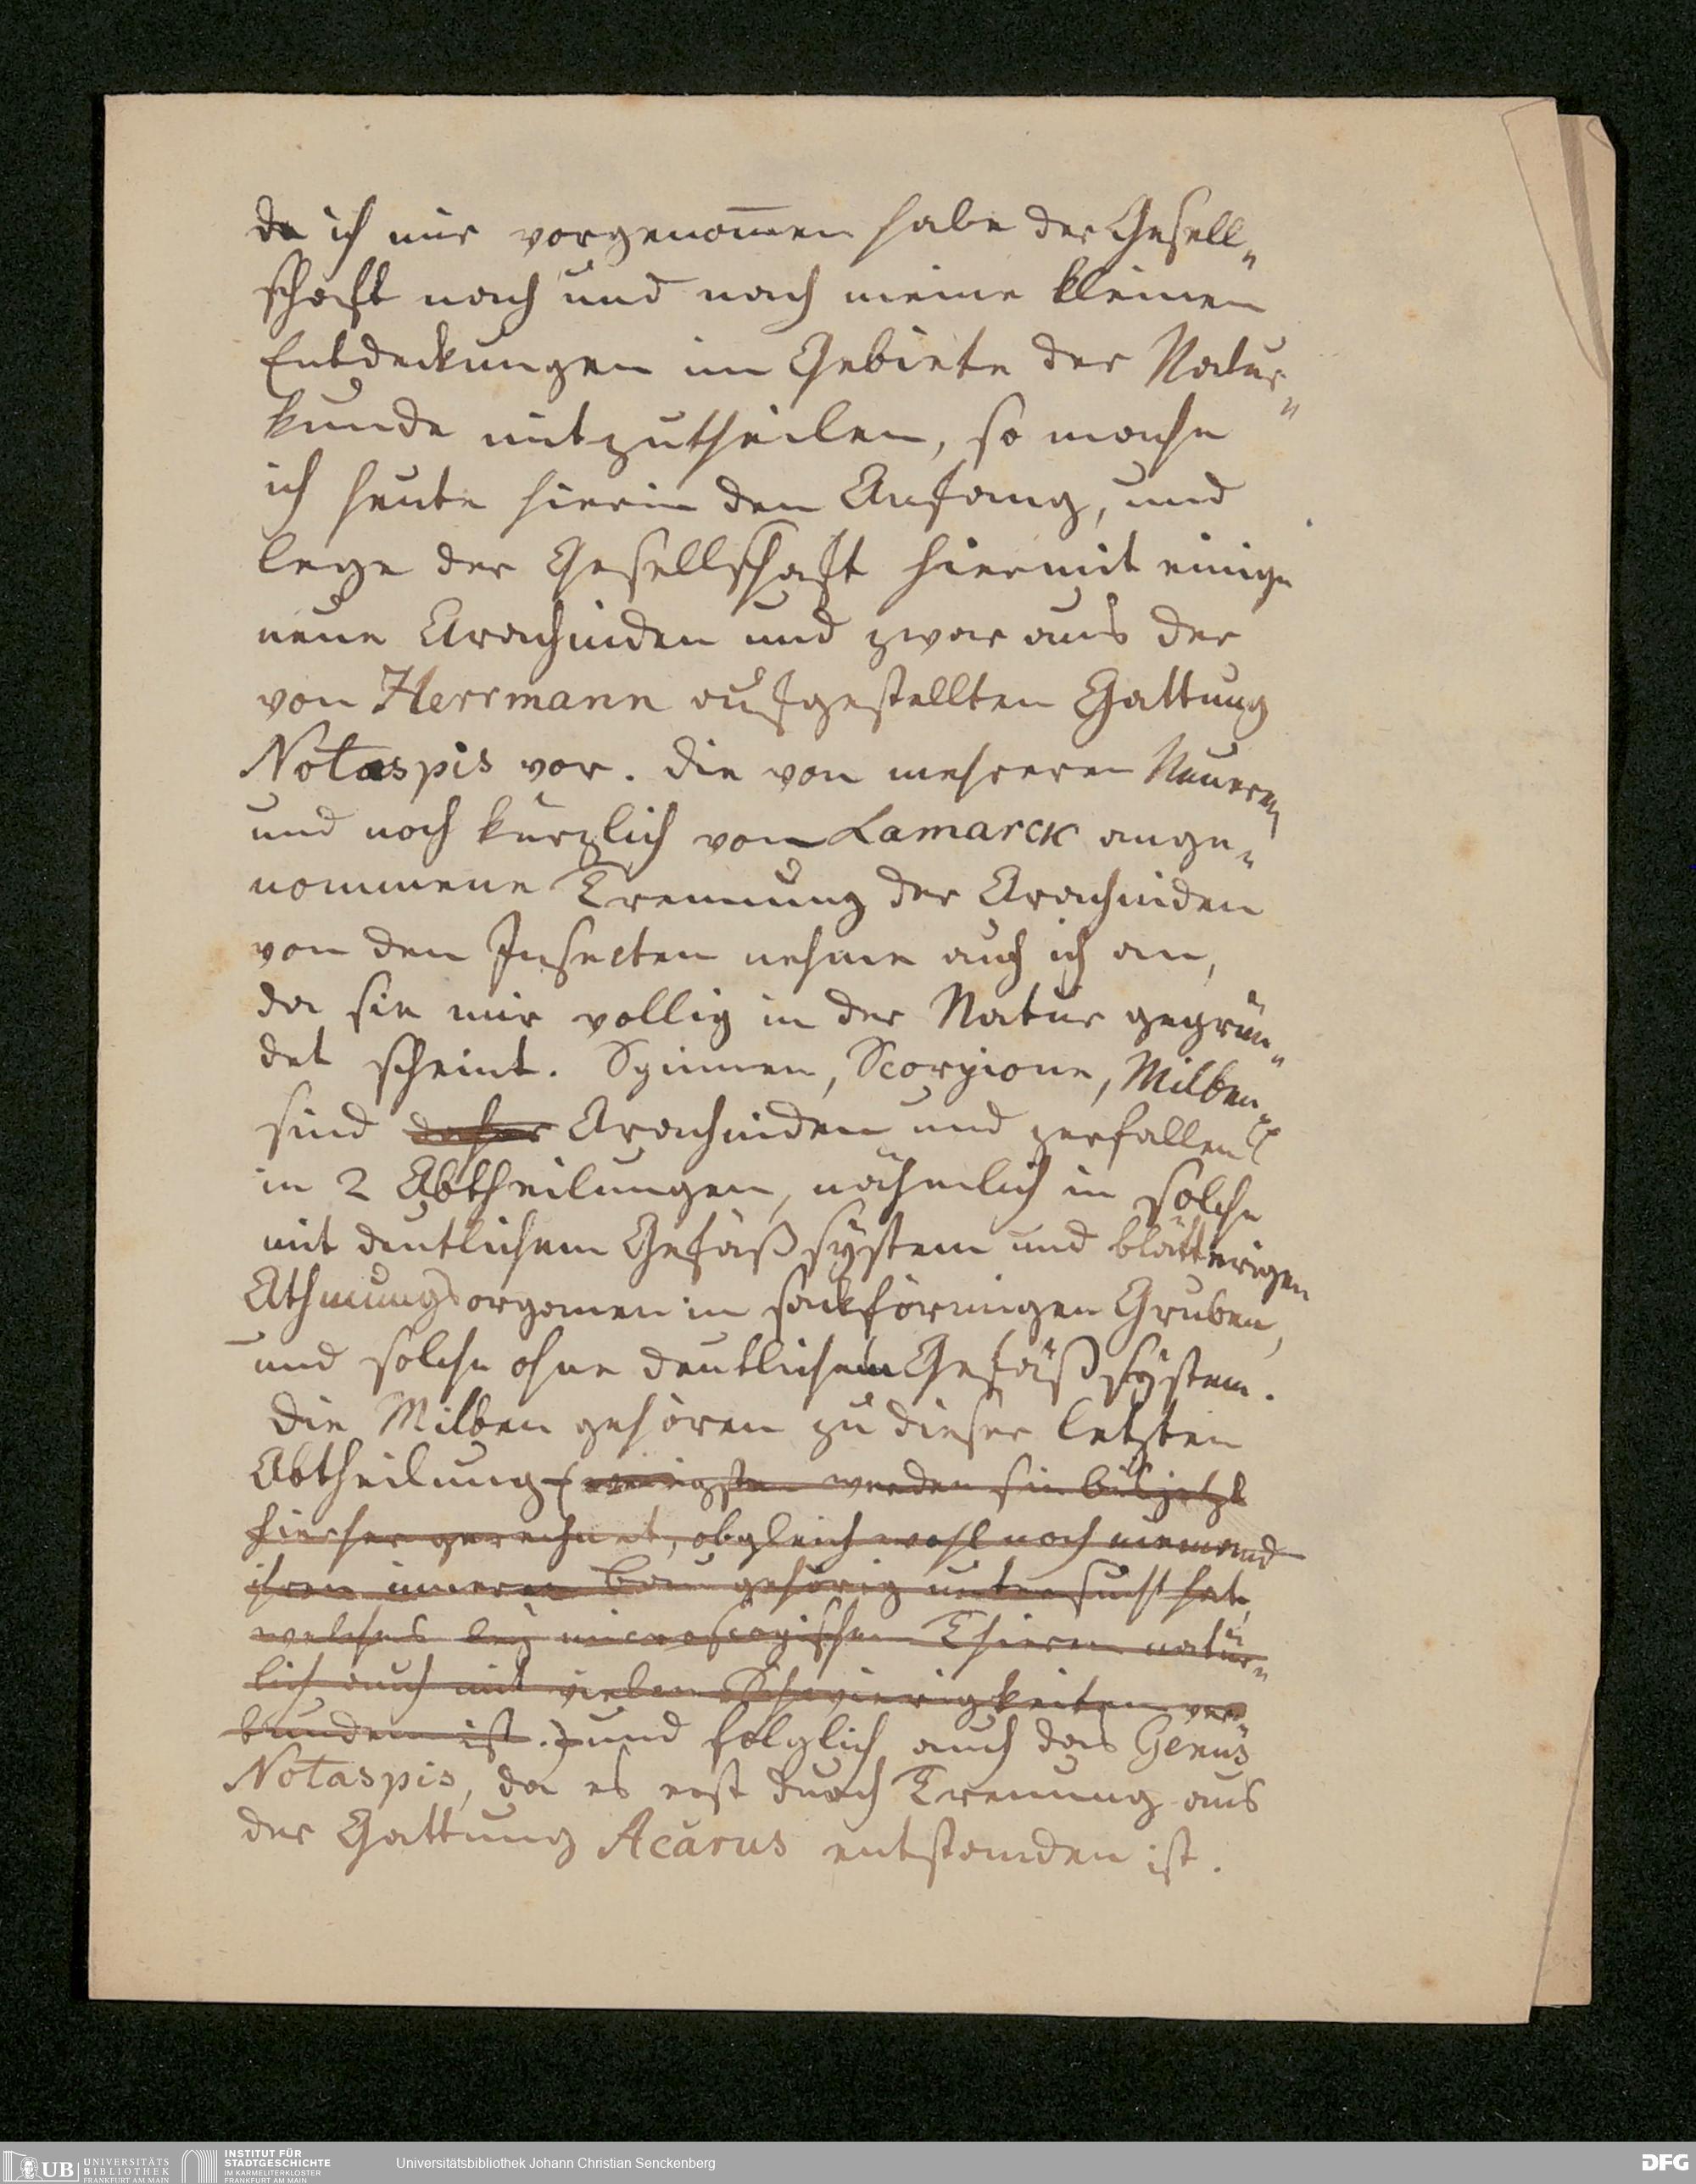 da ich mir vorgenom̅en habe der Gesell„
schaft nach und nach meine kleinen
Entdeckungen im Gebiete der Natur„
kunde mitzutheilen, so mache
ich heute hierin den Anfang, und
lege der Gesellschaft hiermit einige
neue Arachniden und zwar aus der
von Herrmann aufgestellten Gattung
Notaspis vor. Die von mehreren Neueren
und noch kürzlich von Lamarck ange„
nommene Trennung der Arachniden
von den Insecten nehme auch ich an,
da sie mir vollig in der Natur gegrün„
det scheint. Spinnen, Scorpione, Milben
sind daher Arachniden und zerfallen
in 2 Abtheilungen, nähmlich in solche
mit deutlichem Gefäßsystem und blätterigen
Athmungsorganen in sackförmigen Gruben,
und solche ohne deutlichem Gefäßsystem.
Die Milben gehören zu dieser letzten
Abtheilung (wenigsten werden sie bis jetzt
hierher gerechnet, obgleich wohl noch niemand
ihren inneren Bau gehörig untersucht hat,
welches bey microscopischen Thieren natür„
lich auch mit vielen Schwierigkeiten ver„
bunden ist.) und folglich auch das Genus
Notaspis, da es erst durch Trennung aus
der Gattung Acarus entstanden ist.
UB UNIVERSITÄTS
BIBLIOTHEK
FRANKFURT AM MAIN
INSTITUT FÜR
STADTGESCHICHTE
IM KARMELITERKLOSTER
FRANKFURT AM MAIN
Universitätsbibliothek Johann Christian Senckenberg
DFG